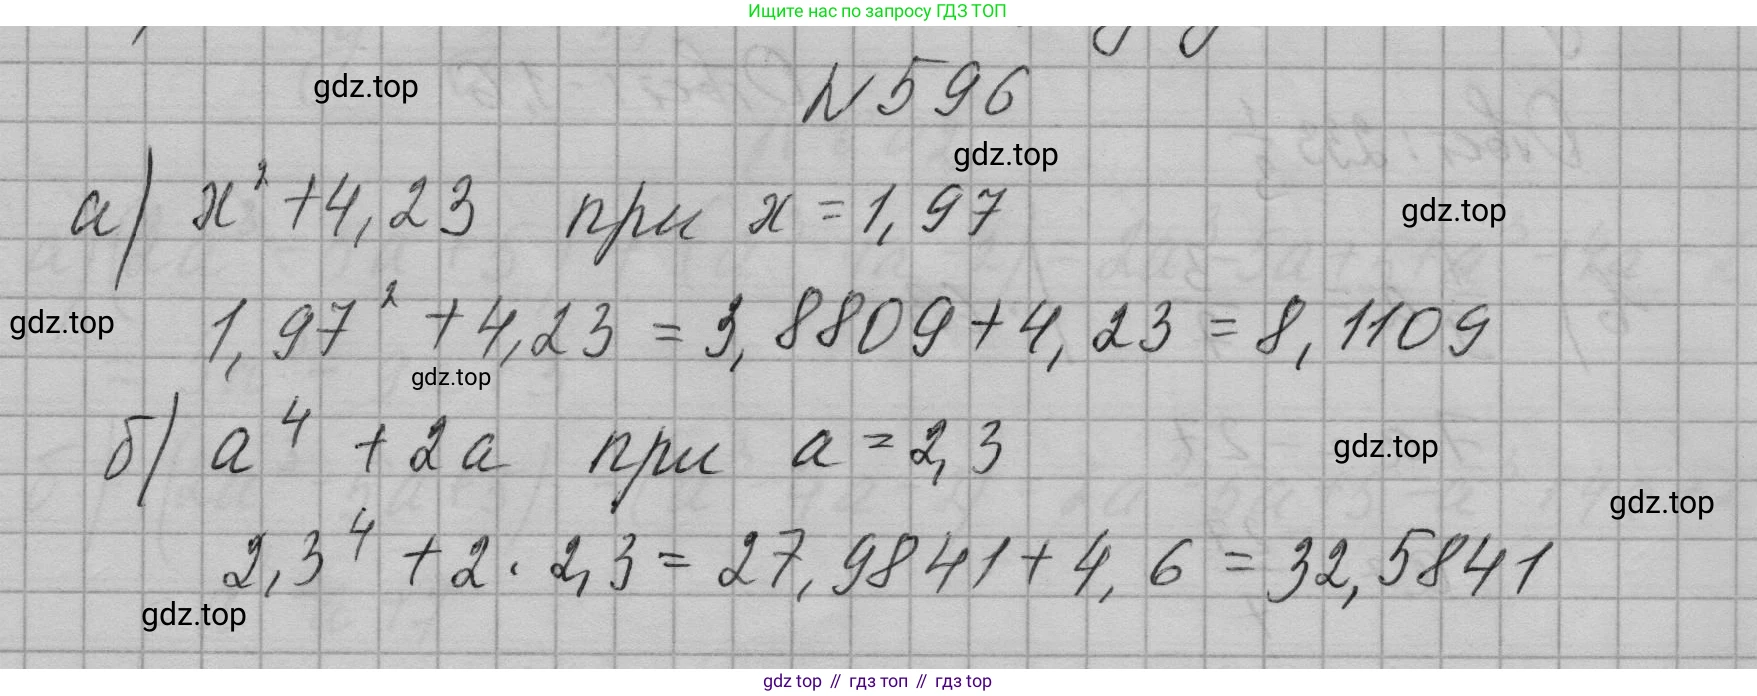 Ищите нас по запросу ГДЗ ТОП
gdz.top
N 596
gdz.top
gdz.top
а) x² + 4,23 при x = 1,97
gdz.top
1,97² + 4,23 = 3,8809 + 4,23 = 8,1109
gdz.top
б) a⁴ + 2a при a = 2,3
gdz.top
gdz.top
2,3⁴ + 2 · 2,3 = 27,9841 + 4,6 = 32,5841
gdz.top
gdz top // гдз топ // гдз top